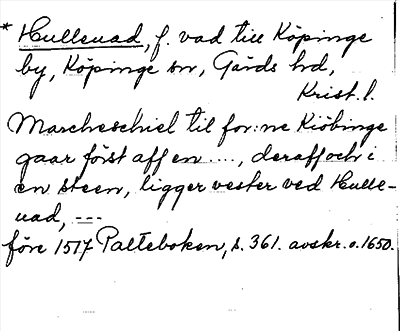 * Hulleuad, f. vad till Köpinge
by, Köpinge sn, Gärds hd,
Krist. l.
Marcheschiel til for:ne Kiöbinge
gaar först aff en ...., deraff och i
en steen, ligger vester ved Hulle-
uad, ---
före 1517 Palteboken, s. 361. avskr. o. 1650.